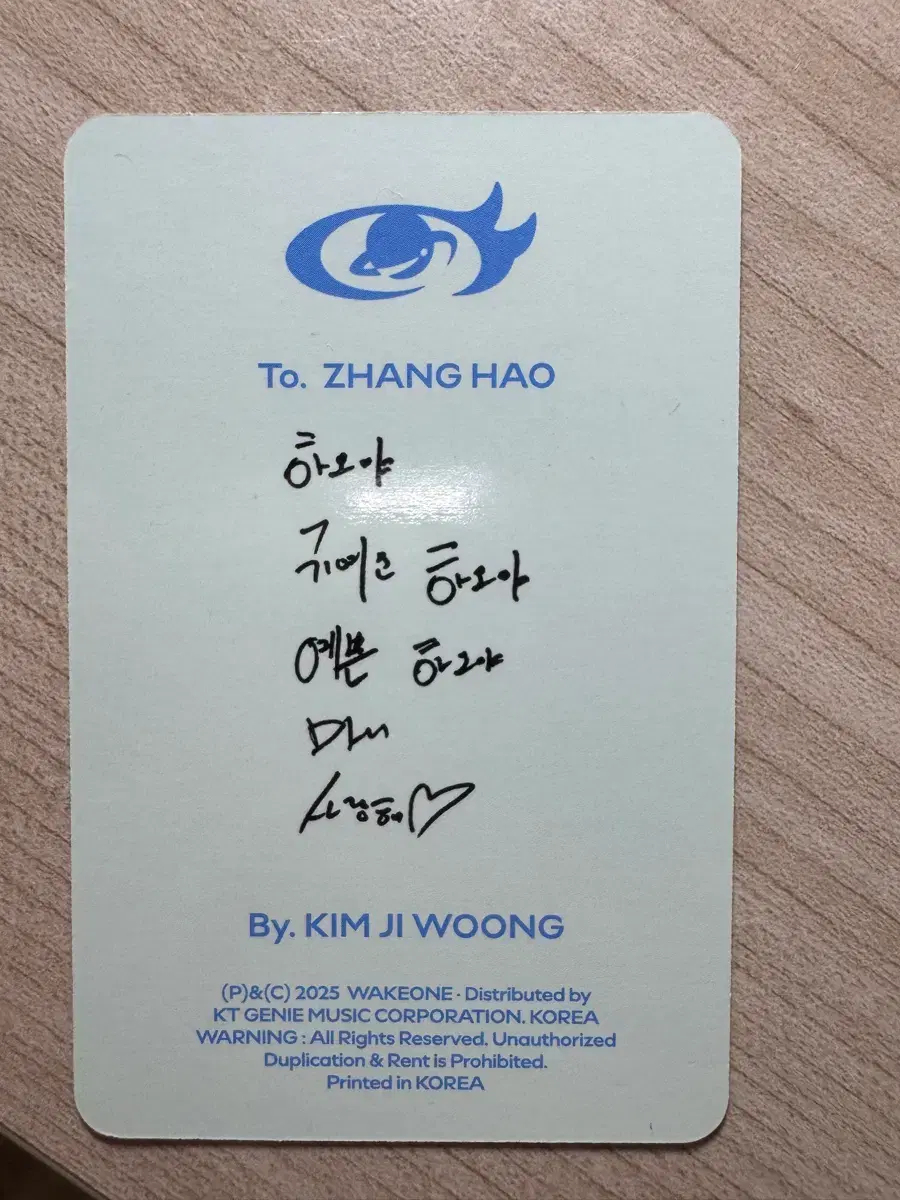 To. ZHANG HAO
하오야
하오야
예쁜 하오야
사랑해♡
By. KIM JI WOONG
(P)&(C) 2025 WAKEONE · Distributed by
KT GENIE MUSIC CORPORATION. KOREA
WARNING : All Rights Reserved. Unauthorized
Duplication & Rent is Prohibited.
Printed in KOREA